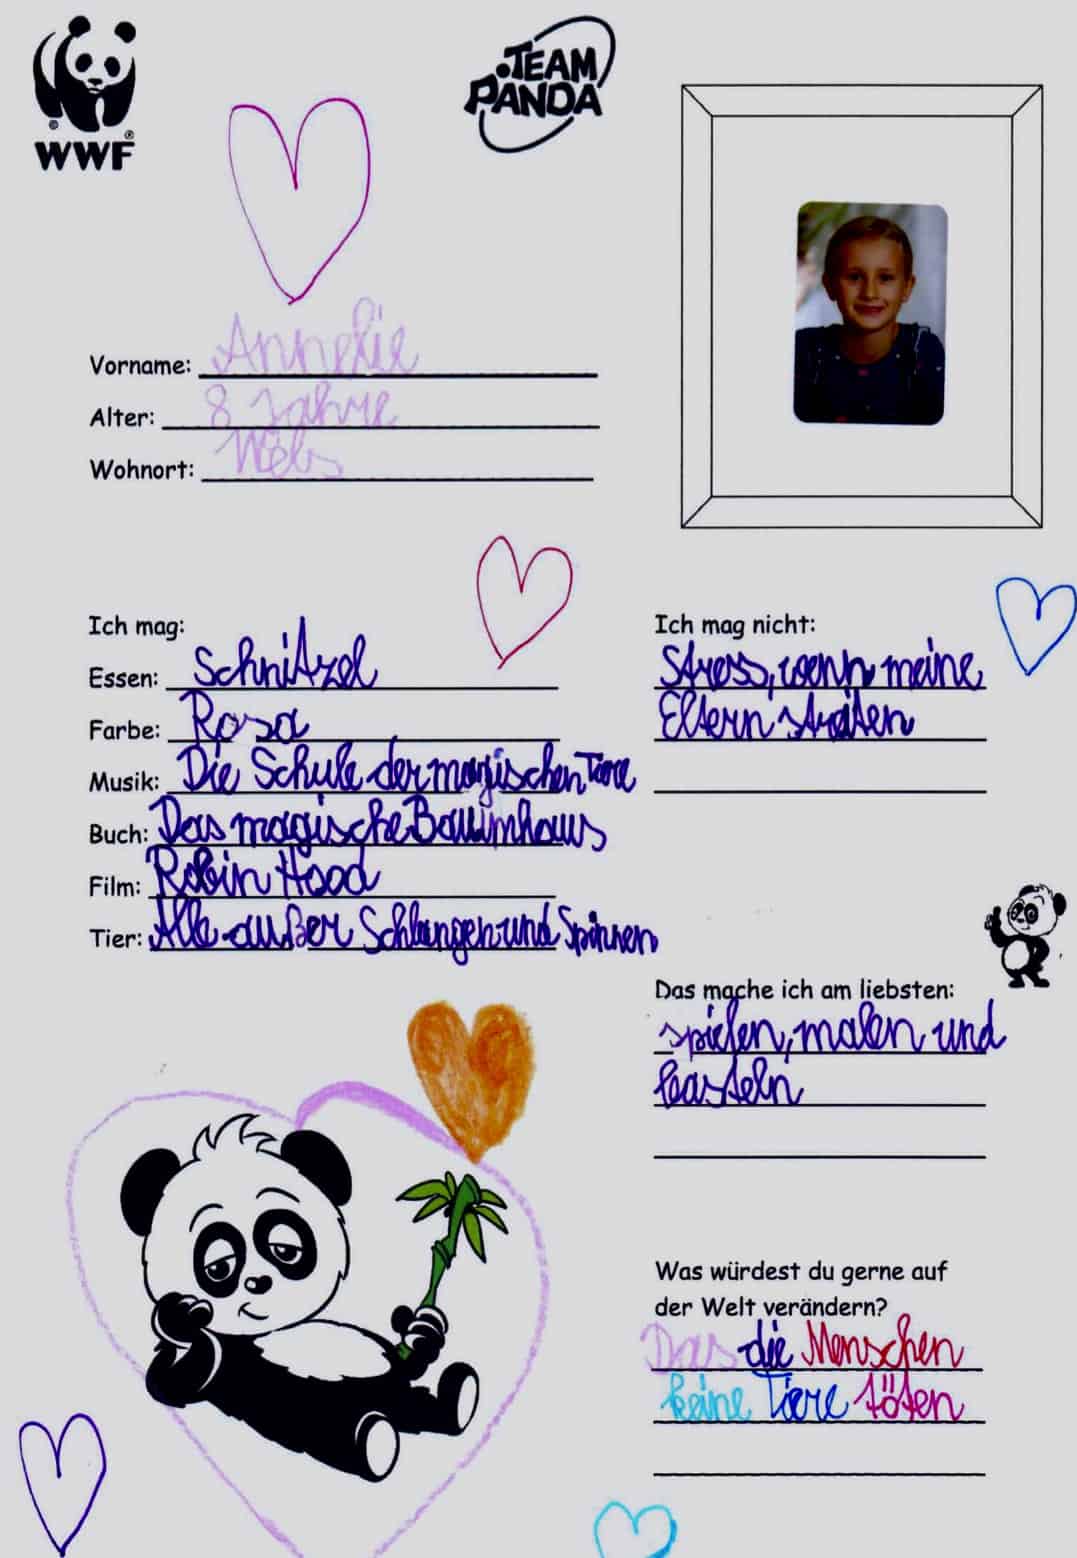 WWF
TEAM
PANDA
Vorname: Annelie
Alter: 8 Jahre
Wohnort:
Ich mag:
Essen: Schnitzel
Farbe: Rosa
Musik: Die Schule der magischen Tiere
Buch: Das magische Baumhaus
Film: Robin Hood
Tier: Alle außer Schlangen und Spinnen
Ich mag nicht:
Stress, wenn meine
Eltern streiten
Das mache ich am liebsten:
spielen, malen und
basteln
Was würdest du gerne auf
der Welt verändern?
Das die Menschen
keine Tiere töten